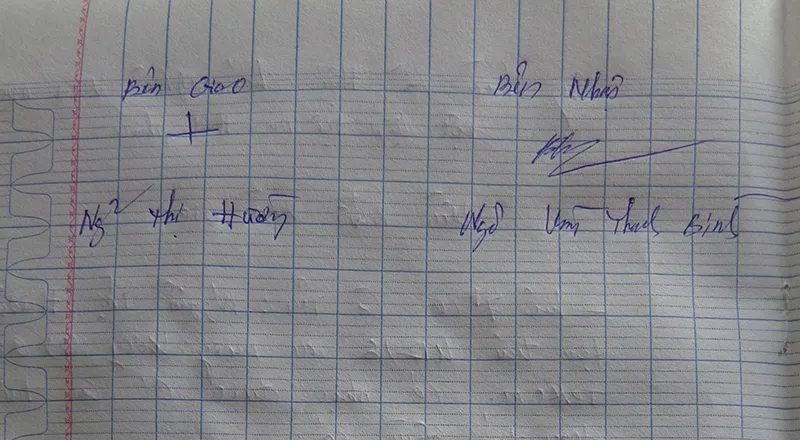 Bên Giao
Bên Nhận
Ng² Thị Hường
Ngô Văn Thanh Bình